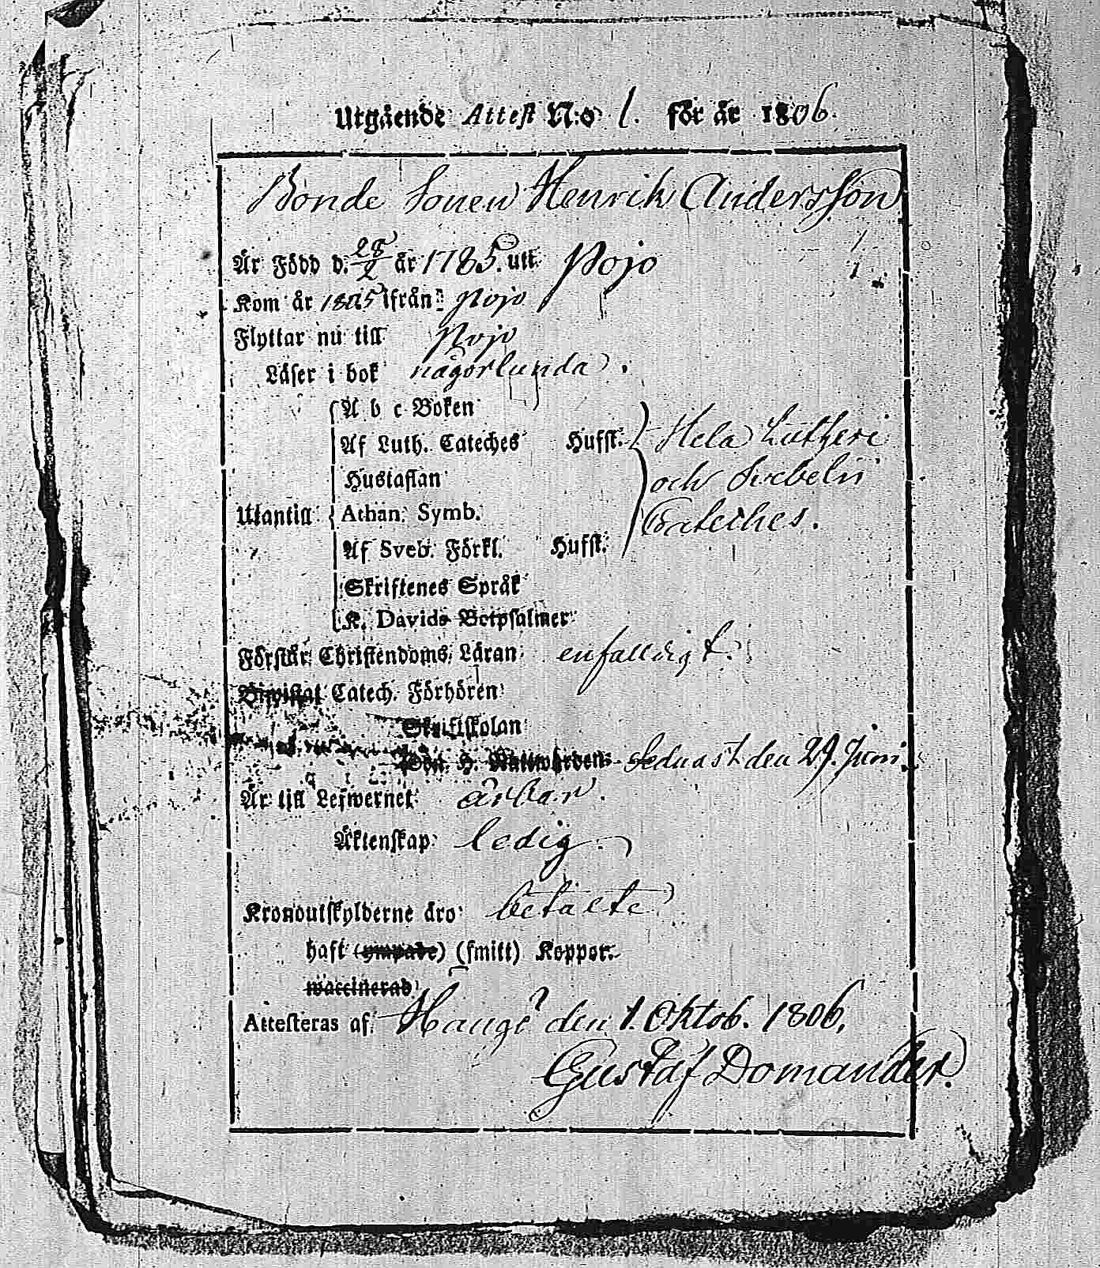 Utgående Attest N:o 1. för år 1806.
Bonde Sonen Henrik Andersson
Är Född d. 28/2 år 1785. utï Pojo
Kom år 1805 ifrån Pojo
Flyttar nu till Pojo
Läser i bok någorlunda.
A b c Boken
Af Luth. Cateches Hufst. Hela Lutheri
Hustaflan och Svebelii
Utantill Athan. Symb. Cateches.
Af Sveb. Förkl. Hufst.
Skriftenes Språk
K. Davids Botpsalmer
Förstår Christendoms Läran enfaldigt.
Catech. Förhören
Skriftskolan
H. Nattwarden sednast den 29. Juni.
Är till Lefwernet ärbar.
Äktenskap ledig.
Kronoutskylderne äro betalte
haft (ympade) (smitt) Koppor.
waccinerad
Attesteras af. Hangö den 1. Oktob. 1806.
Gustaf Domander.